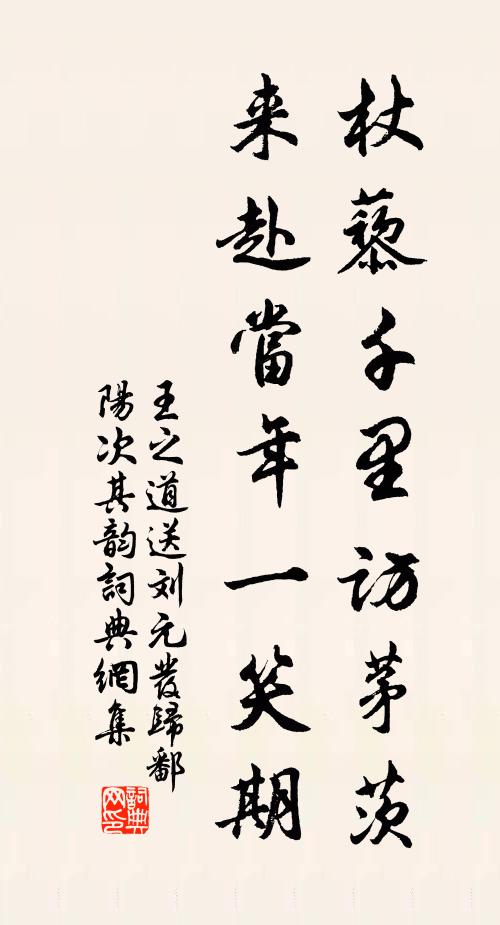 杖藜千里訪茅茨
来赴當年一笑期
王之道送刘元發歸鄱
陽次其韵詞典網集
詞典
网印